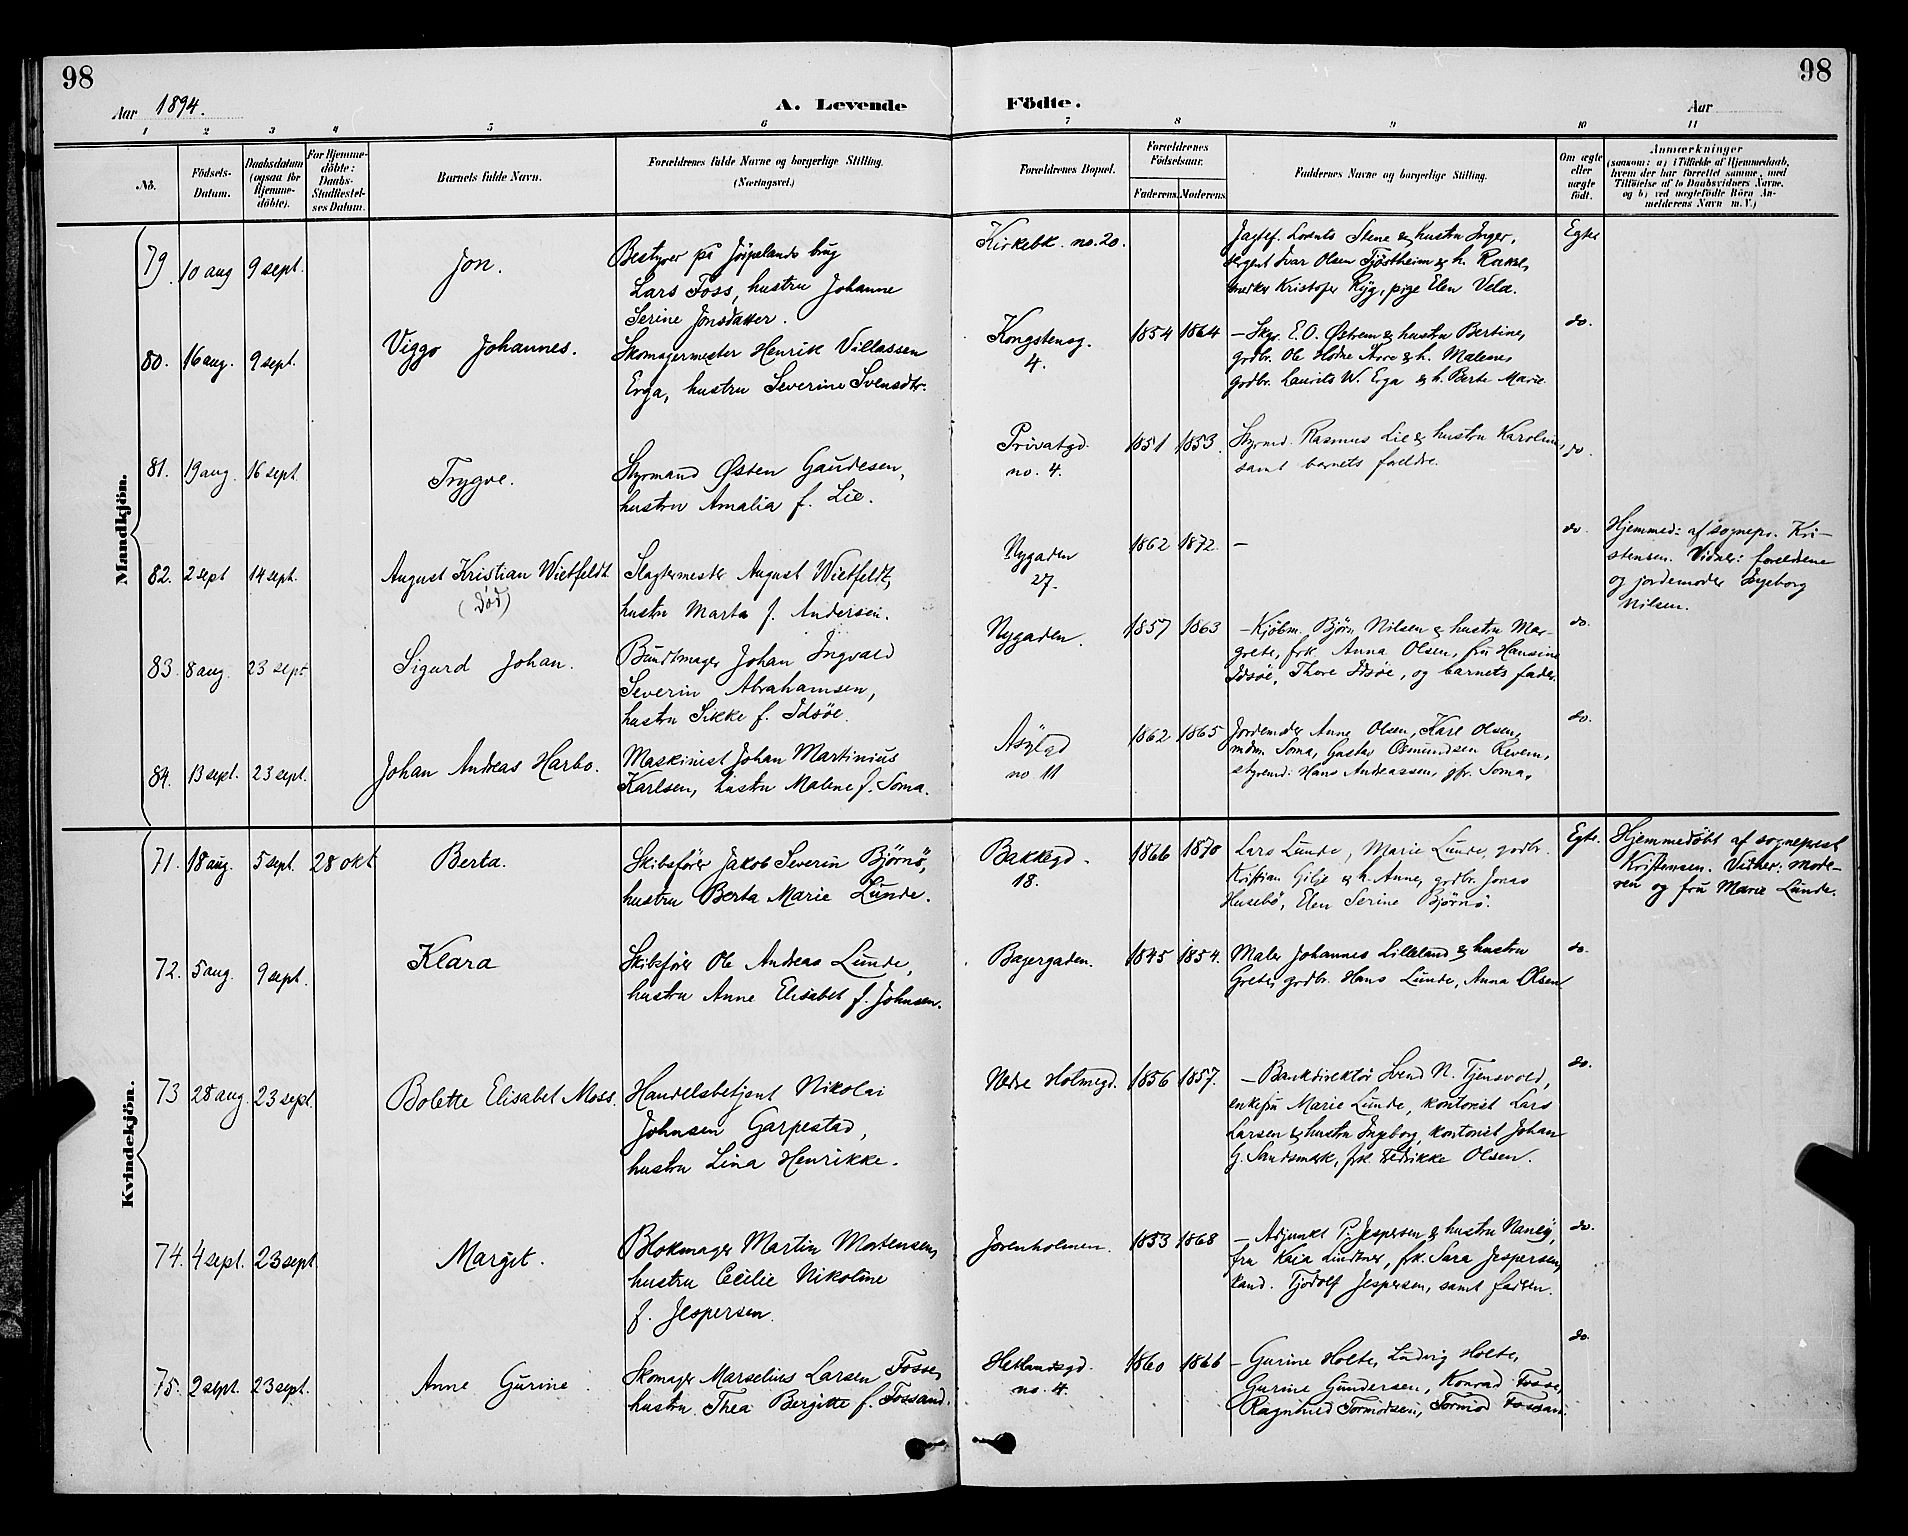 98
98
Aar 1894.
A. Levende
Födte.
Aar
1 2 3 4 5 6 7 8 9 10 11
No.
Födsels-
Datum.
Daabsdatum
(ogsaa for
Hjemme-
döbte).
For Hjemme-
döbte:
Daabs-
Stadfæstel-
ses Datum.
Barnets fulde Navn.
Forældrenes fulde Navne og borgerlige Stilling.
(Næringsvei.)
Forældrenes Bopæl.
Forældrenes
Födselsaar.
Faderens. Moderens.
Faddernes Navne og borgerlige Stilling.
Om ægte
eller
uægte
födt.
Anmærkninger
(saasom: a) i Tilfælde af Hjemmedaab,
hvem der har forrettet samme, med
Tilföielse af to Daabsvidners Navne,
og b) ved uægtefödte Börn An-
melderens Navn m. V.)
Mandkjön.
79. 10 aug 9 sept. Jon.
Bestyrer på Jørpelands brug
Lars Foss, hustru Johanne
Serine Jonsdatter.
Kirkebk. no. 20.
Lorents Stene & hustru Inger,
sergent Ivar Olsen Tjøstheim & h. Rakel,
Kristofer Ryg, pige Elen Vela.
Egte
80. 16 aug. 9 sept. Viggo Johannes.
Skomagermester Henrik Villassen
Erga, hustru Severine Svensdtr.
Kongstensg.
4.
1854 1864
— Skgr. E. O. Østrem & hustru Bertine,
grdbr. Ole Hodne Arre & h. Malene,
grdbr. Laurits W. Erga & h. Berte Marie.
do.
81. 19 aug. 16 sept. Trygve.
Styrmand Østen Gaudesen,
hustru Amalia f. Lie.
Privatgd.
no. 4.
1851 1853.
Styrmd. Rasmus Lie & hustru Karoline,
samt barnets foreldre.
do.
82. 2 sept 14 sept. August Kristian Wietfeldt
(død)
Slagtermester August Wietfeldt,
hustru Marta f. Andersen.
Nygaden
27.
1862 1872. —
do.
Hjemmed: af sognepr. Kri-
stensen. Vidner: foreldrene
og jordemoder Ingeborg
Nilsen.
83. 8 aug. 23 sept Sigurd Johan.
Buntmager Johan Ingvald
Severin Abrahamsen,
hustru Sikke f. Idsøe.
Nygaden.
1857 1863
— Kjøbm. Bjørn Nilsen & hustru Mar-
grete, frk Anna Olsen, fru Hansine
Idsøe, Thore Idsøe, og barnets fader.
do.
84. 13 sept. 23 sept. Johan Andreas Harbo.
Maskinist Johan Martinius
Karlsen, hustru Malene f. Soma.
Asylgd
no 11
1862 1865
Jordemoder Anne Olsen, Karl Olsen,
mdm. Soma, Gustav Osmundsen Revem,
styrmd: Hans Andreassen, jfr. Soma.
do.
Kvindekjön.
71. 18 aug. 5 sept. 28 okt Berta.
Skibsfører Jakob Severin Bjørnø,
hustru Berta Marie Lunde.
Bakkegd.
18.
1866 1870
Lars Lunde, Marie Lunde, grdbr.
Kristian Gilje & h. Anne, grdbr. Jonas
Husebø, Elen Serine Bjørnø.
Egte.
Hjemmedøbt af sogneprest
Kristensen. Vidner: mode-
ren og fru Marie Lunde.
72. 5 aug. 9 sept. Klara
Skibsfører Ole Andreas Lunde,
hustru Anne Elisabet f. Johnsen.
Bagergaden.
1845 1854.
Maler Johannes Lilleland & hustru
Grete, grdbr. Hans Lunde, Anna Olsen
do.
73 28 aug. 23 sept. Bolette Elisabet Moss.
Handelsbetjent Nikolai
Johnsen Garpestad,
hustru Lina Henrikke.
Nedre Holmegd.
1856 1857.
— Bankdirektør Svend N. Tjensvold,
enkefru Marie Lunde, kontorist Lars
Larsen & hustru Ingeborg, kontorist Johan
G. Sandsmark, frk. Fredrikke Olsen.
do.
74. 4 sept. 23 sept. Margit.
Blokmager Martin Mortensen,
hustru Cecilie Nikoline
f. Jespersen.
Jorenholmen.
1853 1868
— Adjunkt P. Jespersen & hustru Nancy,
fru Kaia Lindtner, frk. Sara Jespersen,
kand. Tjodolf Jespersen, samt faderen.
do.
75. 2 sept. 23 sept. Anne Gurine
Skomager Marselius Larsen Fosse,
hustru Thea Bergitte f. Fossand.
Hetlandsgd.
no. 4.
1860 1866
— Gurine Holte, Ludvig Holte,
Gurine Gundersen, Konrad Fosse,
Ragnhild Tormodsen, Tormod Fossan.
do.